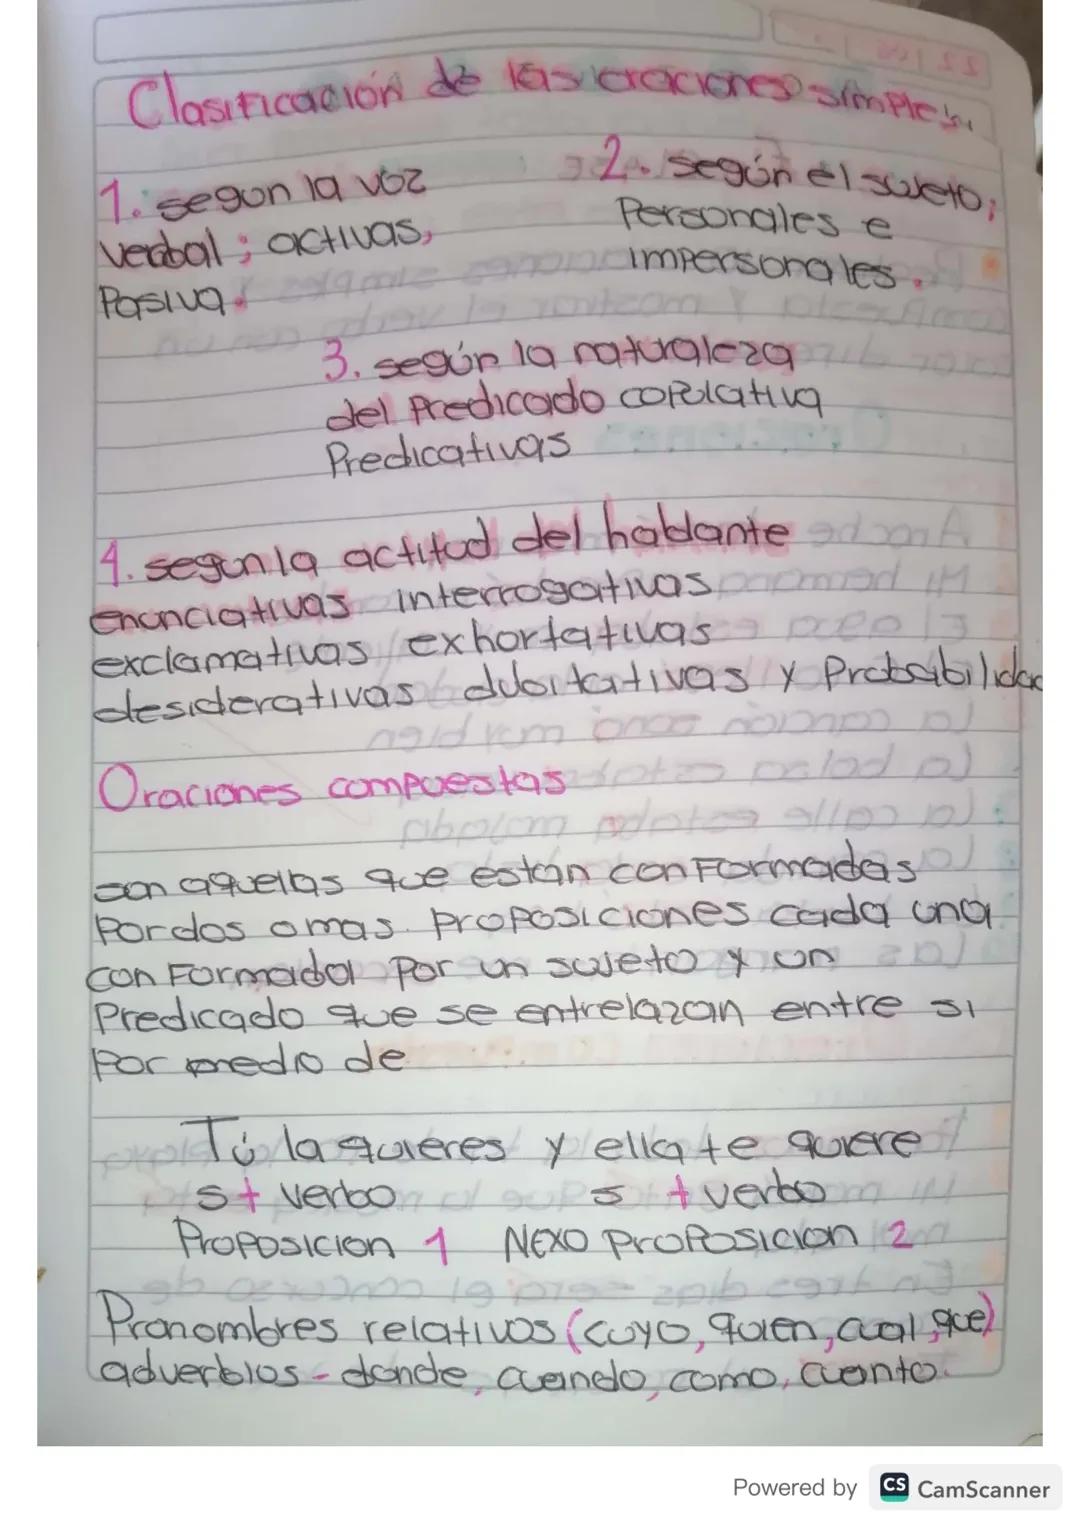 Clasificación de las oraciones simples.
1. segun la voz
verbal; activas,
Pasiva.
2. según el sujeto;
Personales e
impersonales.
3. según la naturaleza
del predicado copulativa
Predicativas
4. segun la actitud del hablante
enunciativas interrogativas
exclamativas exhortativas
desiderativas dubitativas y Probabilidad
Oraciones compuestas
son aquellas que están conformadas
Por dos o mas proposiciones cada una
conformada por un sujeto y un
Predicado que se entrelazan entre si
Por medio de
Tú la quieres y ella te quiere
s + verbo s + verbo
Proposicion 1 NEXO Proposicion 2
Pronombres relativos (cuyo, quien, cual, que)
adverbios - donde, cuando, como, cuanto.
Powered by CS CamScanner